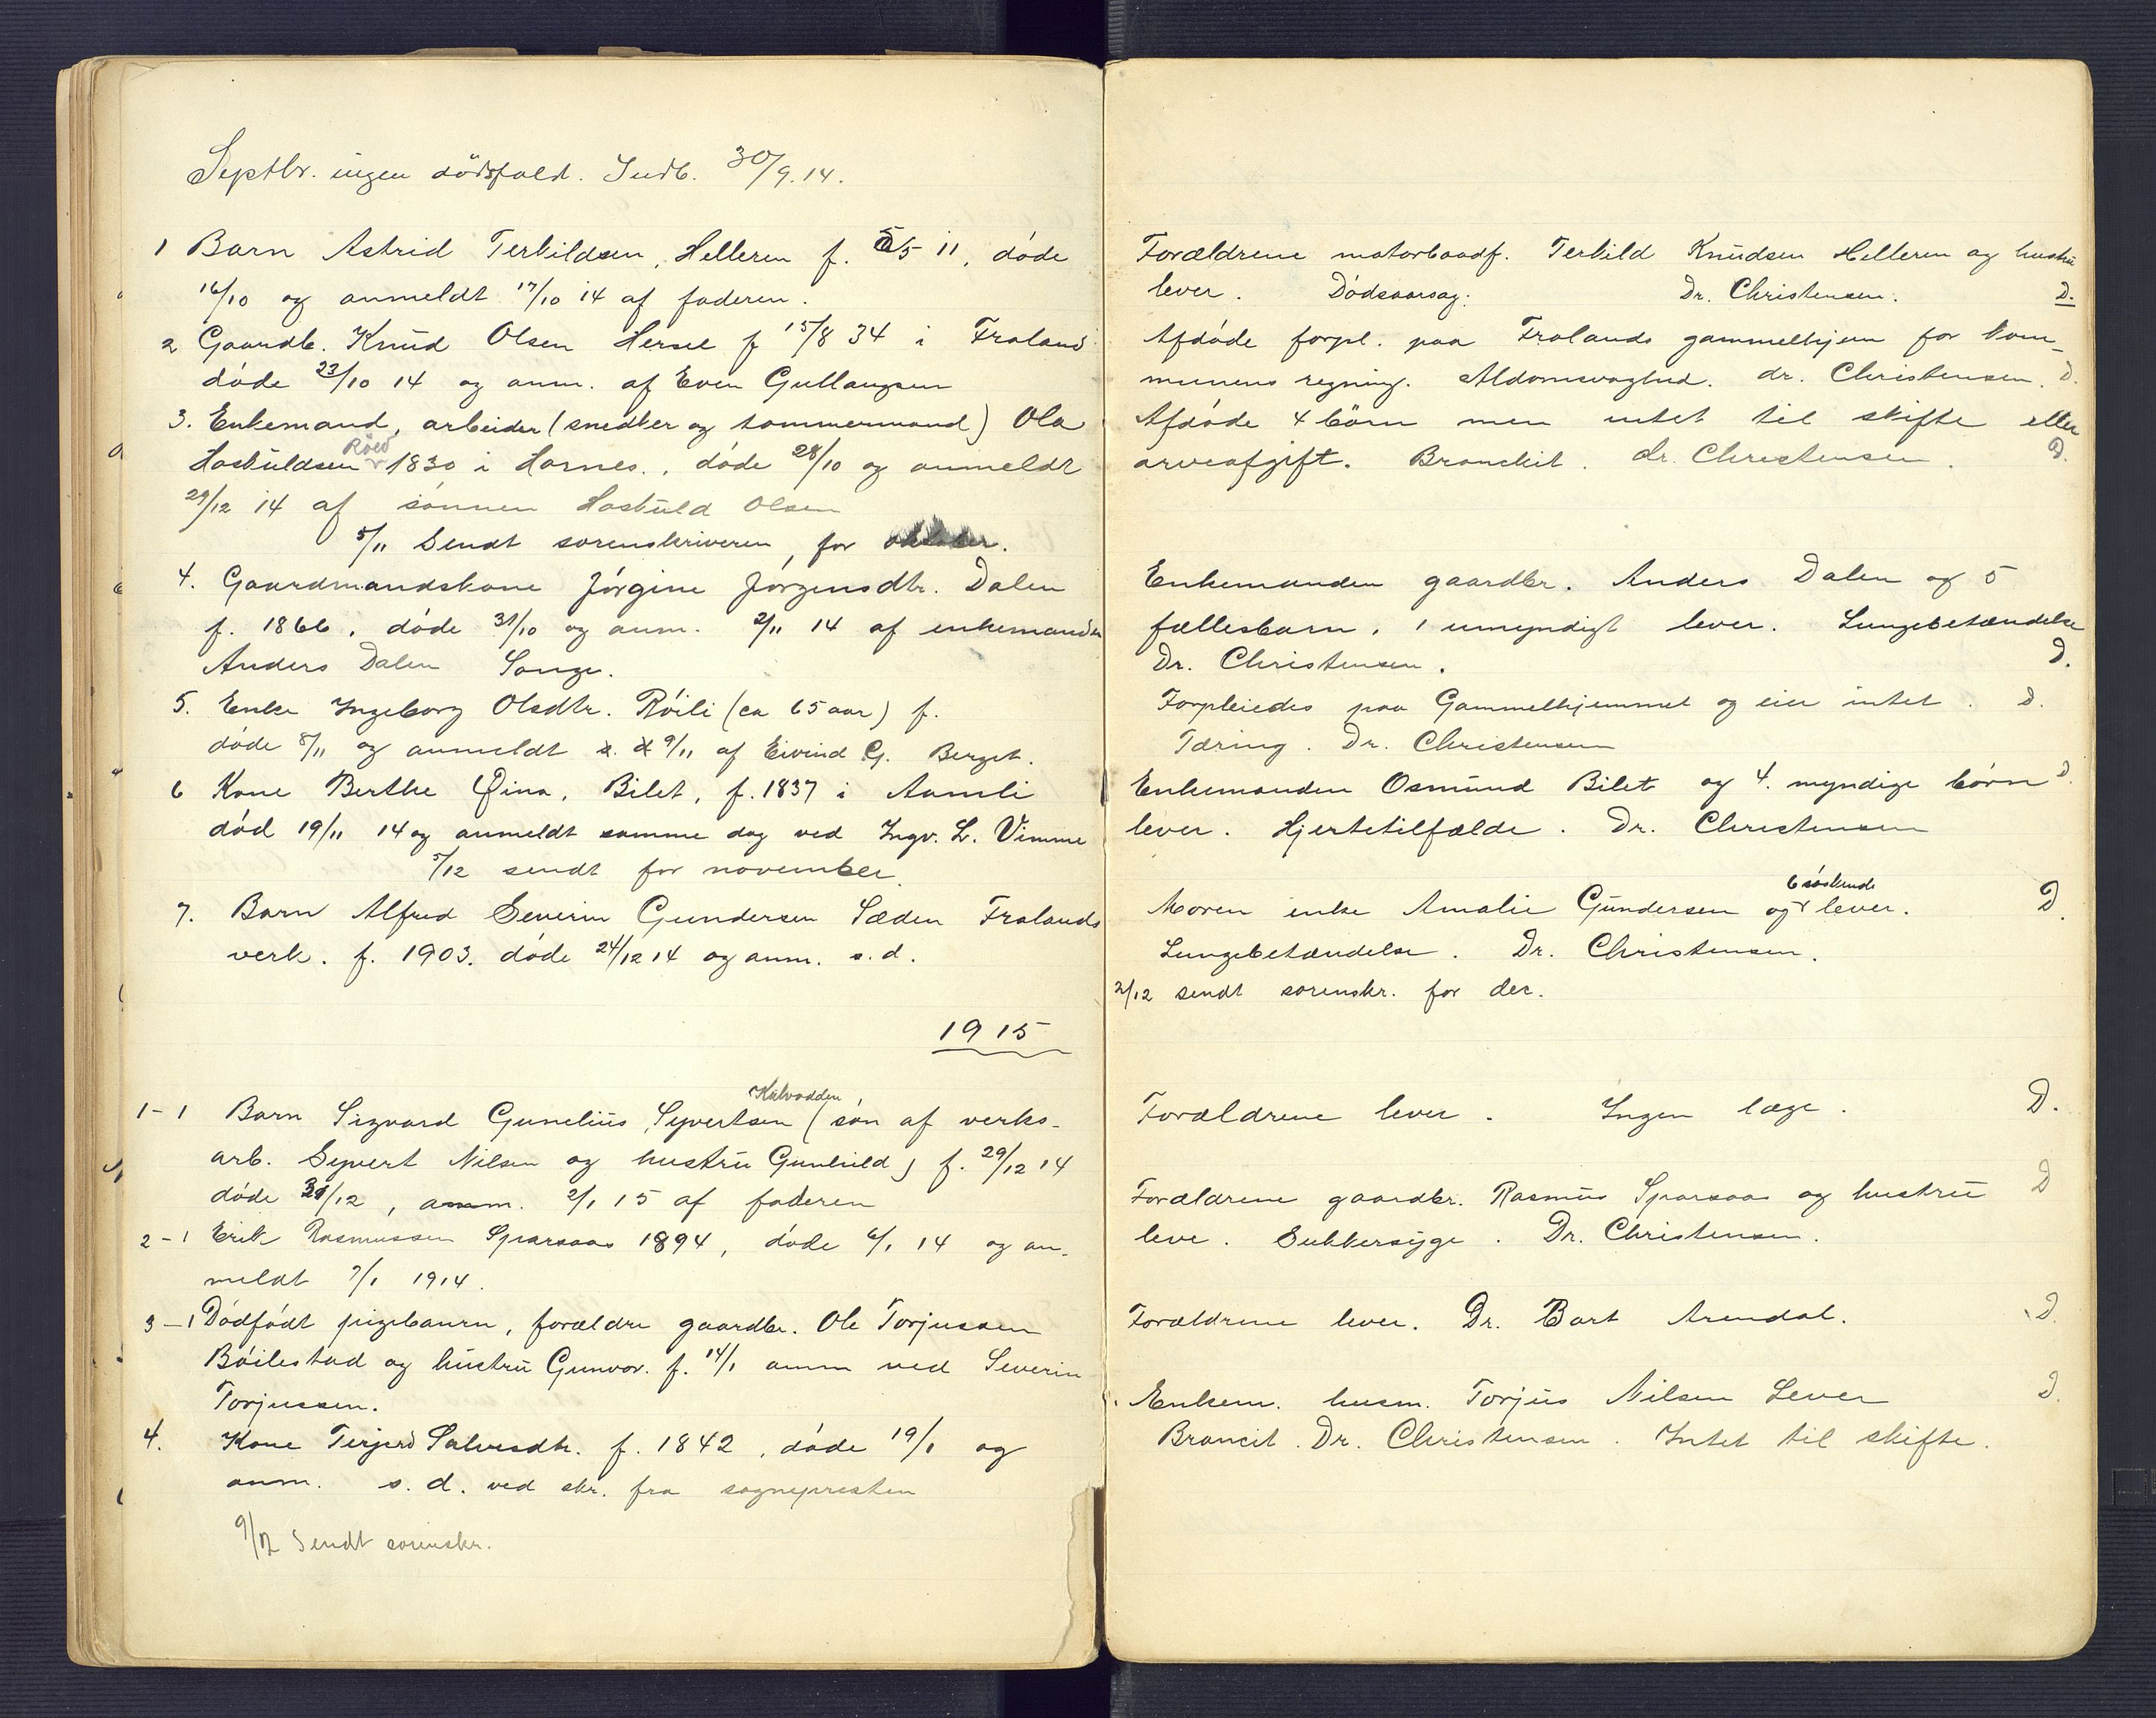 Septbr. ingen dödsfald. Indb. 30/9.14.
1 Barn Astrid Terkildsen, Helleren f. 5/5 11, døde
16/10 og anmeldt 17/10 14 af faderen.
2 Gaardb. Knud Olsen Hersel f 15/8 34 i Froland
døde 23/10 14 og anm. af Even Gullaugsen
3. Enkemand, arbeider (snedker og tømmermand) Ola
Røed
Hoskuldsen 1830 i Hornes., døde 28/10 og anmeldt
29/12 14 af sønnen Hoskuld Olsen
5/11 Sendt sorenskriveren, for oktober.
4. Gaardmandskone Jørgine Jørgensdtr. Dalen
f. 1866, døde 31/10 og anm. 2/11 14 af enkemanden
Anders Dalen Songe.
5. Enke Ingeborg Olsdtr. Røili (ca 65 aar) f.
døde 8/11 og anmeldt 9/11 af Eivind G. Berget.
6 Kone Berthe Oina, Bilet, f. 1837 i Aamli
død 19/11 14 og anmeldt samme dag ved Ingv. L. Vimme
5/12 sendt for november.
7. Barn Alfred Severin Gundersen Sæden Frolands
verk. f. 1903. døde 24/12 14 og anm. s.d.
1915
Kulvodden
1-1 Barn Sigvard Gunelius Syvertsen (søn af verks-
arb. Syvert Nilsen og hustru Gunhild) f. 29/12 14
døde 31/12, anm. 2/1 15 af faderen
2-1 Erik Rasmussen Sparsaas 1894, døde 6/1 14 og an-
meldt 7/1 1914.
3-1 Dødfødt pigebarn, forældre gaardbr. Ole Torjussen
Bøilestad og hustru Gunvor. f. 14/1 anm ved Severin
Torjussen.
4. Kone Terjerd Salvesdtr. f. 1842, døde 19/1 og
anm. s.d. ved skr. fra sognepresten
9/2 Sendt sorenskr.
Forældrene motorbaadf. Terkild Knudsen Helleren og hustru
lever. Dødsaarsag: Dr. Christensen. D.
Afdøde forpl. paa Frolands gammelhjem for kom-
munens regning. Aldomsvaghed. dr. Christensen. D.
Afdøde 4 börn men intet til skifte eller
arveafgift. Bronchit. dr. Christensen. D.
Enkemanden gaardbr. Anders Dalen og 5
fællesbarn, 1 umyndigt lever. Lungebetændelse
Dr. Christensen. D.
Forpleiedes paa Gammelhjemmet og eier intet. D.
Tæring. Dr. Christensen
Enkemanden Osmund Bilet og 4. myndige børn D.
lever. Hjertetilfælde. Dr. Christensen
6 søskende
Moren enke Amalie Gundersen og lever. D.
Lungebetændelse. Dr. Christensen.
2/12 sendt sorenskr. for dec.
Forældrene lever. Ingen læge. D.
Forældrene gaardbr. Rasmus Sparsaas og hustru D
leve. Sukkersyge. Dr. Christensen.
Forældrene lever. Dr. Bort Arendal. D.
Enkem. husm. Torjus Nilsen Lever D.
Broncit. Dr. Christensen. Intet til skifte.